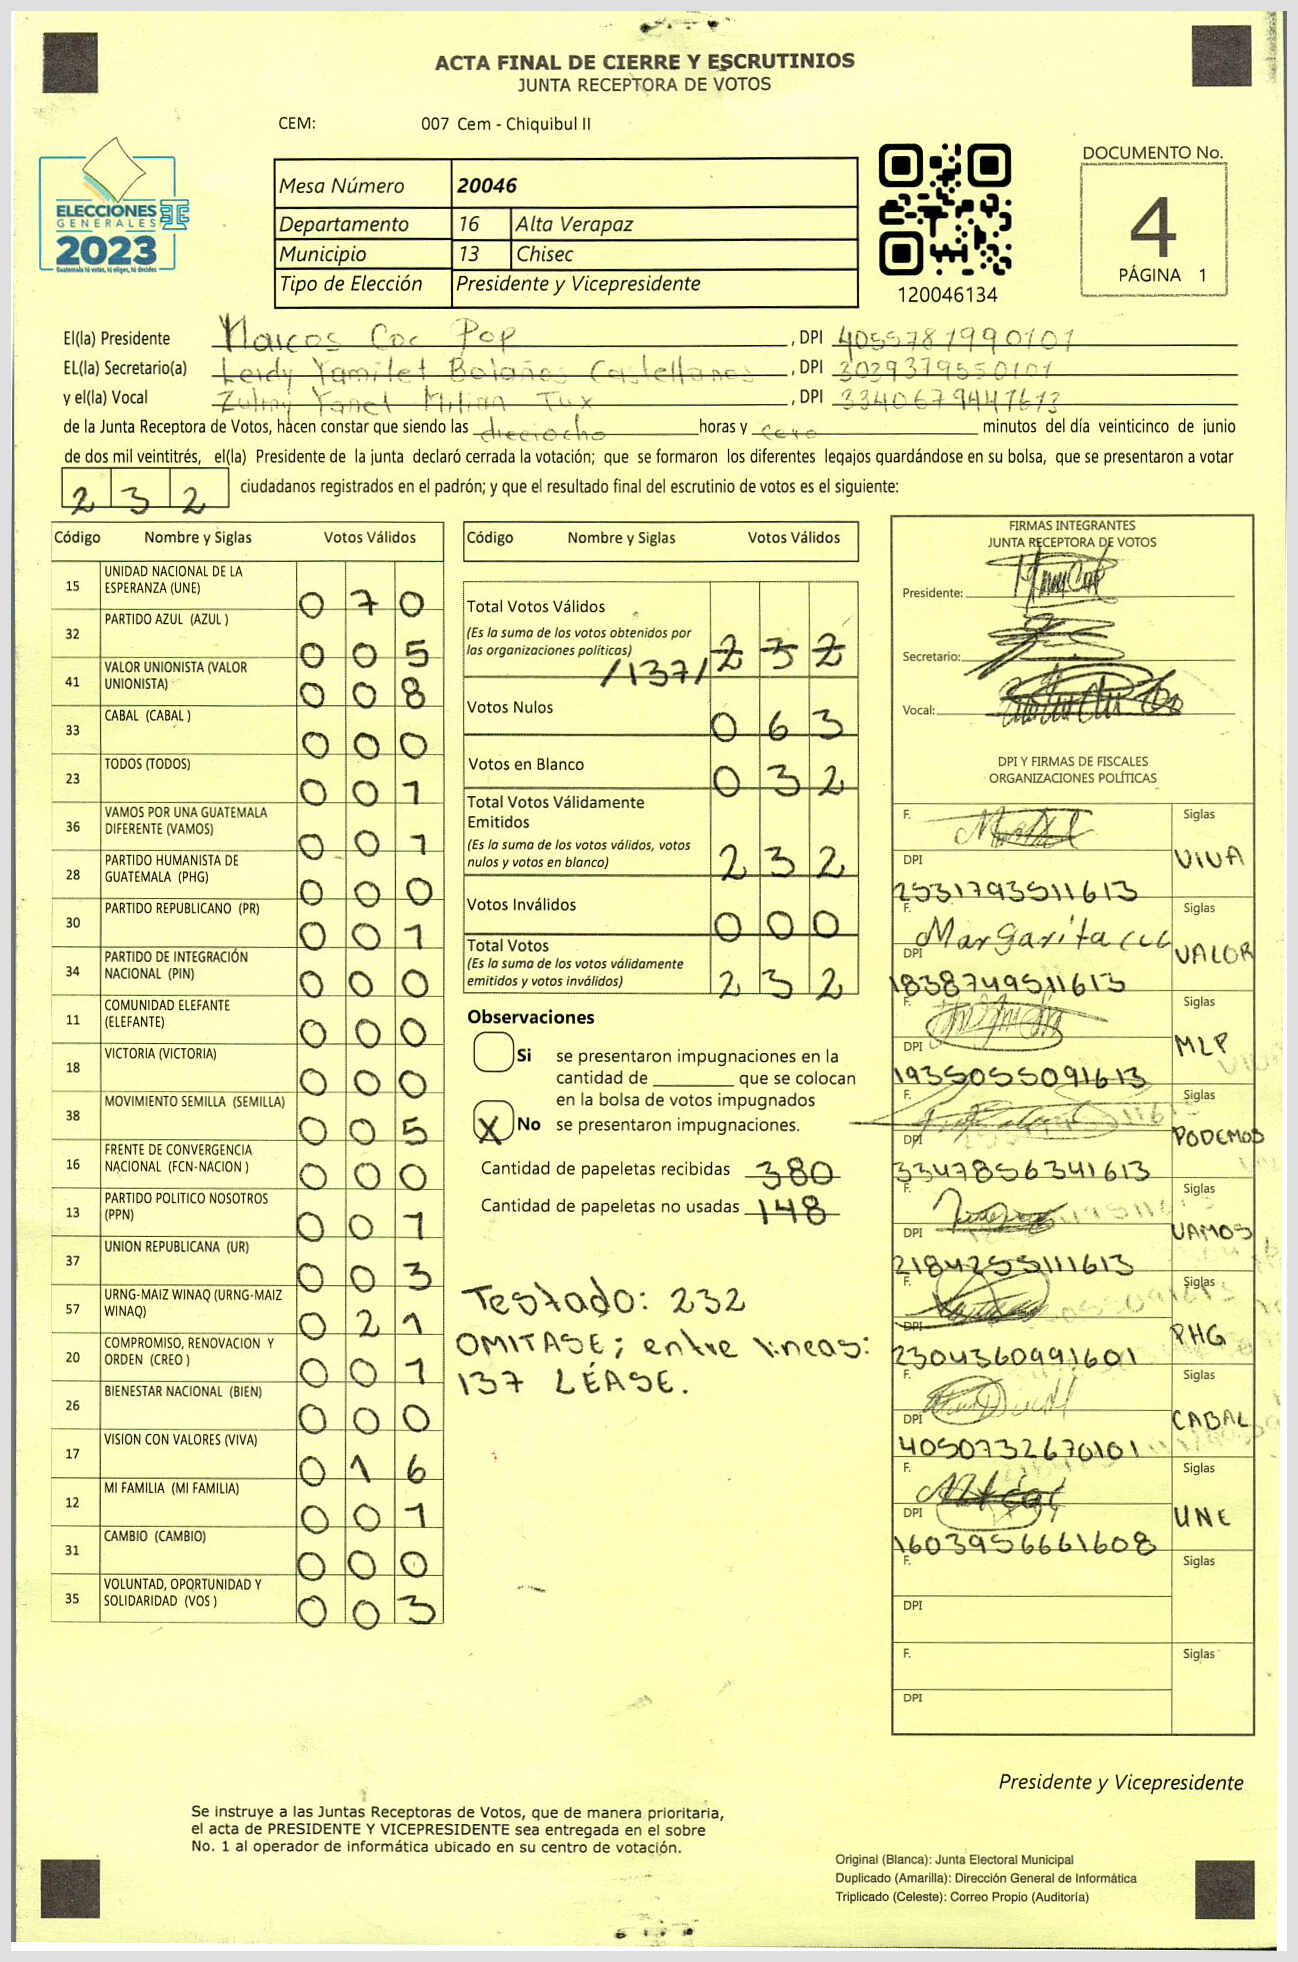 ACTA FINAL DE CIERRE Y ESCRUTINIOS
JUNTA RECEPTORA DE VOTOS
CEM: 007 Cem - Chiquibul II
ELECCIONES
GENERALES
2023
Guatemala tú votas, tú eliges, tú decides
Mesa Número 20046
Departamento 16 Alta Verapaz
Municipio 13 Chisec
Tipo de Elección Presidente y Vicepresidente
120046134
DOCUMENTO No.
4
PÁGINA 1
El(la) Presidente Marcos Coc Pop, DPI 4055781990101
EL(la) Secretario(a) Leidy Yamilet Bolaños Castellanos, DPI 3029379550101
y el(la) Vocal Zulmy Yanet Milian Tux, DPI 3340679441613
de la Junta Receptora de Votos, hacen constar que siendo las dieciocho horas y cero minutos del día veinticinco de junio
de dos mil veintitrés, el(la) Presidente de la junta declaró cerrada la votación; que se formaron los diferentes legajos guardándose en su bolsa, que se presentaron a votar
232 ciudadanos registrados en el padrón; y que el resultado final del escrutinio de votos es el siguiente:
Código Nombre y Siglas Votos Válidos
15 UNIDAD NACIONAL DE LA ESPERANZA (UNE) 070
32 PARTIDO AZUL (AZUL ) 005
41 VALOR UNIONISTA (VALOR UNIONISTA) 008
33 CABAL (CABAL ) 000
23 TODOS (TODOS) 001
36 VAMOS POR UNA GUATEMALA DIFERENTE (VAMOS) 001
28 PARTIDO HUMANISTA DE GUATEMALA (PHG) 000
30 PARTIDO REPUBLICANO (PR) 001
34 PARTIDO DE INTEGRACIÓN NACIONAL (PIN) 000
11 COMUNIDAD ELEFANTE (ELEFANTE) 000
18 VICTORIA (VICTORIA) 000
38 MOVIMIENTO SEMILLA (SEMILLA) 005
16 FRENTE DE CONVERGENCIA NACIONAL (FCN-NACION ) 000
13 PARTIDO POLITICO NOSOTROS (PPN) 001
37 UNION REPUBLICANA (UR) 003
57 URNG-MAIZ WINAQ (URNG-MAIZ WINAQ) 021
20 COMPROMISO, RENOVACION Y ORDEN (CREO ) 001
26 BIENESTAR NACIONAL (BIEN) 000
17 VISION CON VALORES (VIVA) 016
12 MI FAMILIA (MI FAMILIA) 001
31 CAMBIO (CAMBIO) 000
35 VOLUNTAD, OPORTUNIDAD Y SOLIDARIDAD (VOS ) 003
Código Nombre y Siglas Votos Válidos
Total Votos Válidos
(Es la suma de los votos obtenidos por
las organizaciones políticas) 232
/137/
Votos Nulos 063
Votos en Blanco 032
Total Votos Válidamente
Emitidos
(Es la suma de los votos válidos, votos
nulos y votos en blanco) 232
Votos Inválidos 000
Total Votos
(Es la suma de los votos válidamente
emitidos y votos inválidos) 232
Observaciones
Si se presentaron impugnaciones en la
cantidad de ________ que se colocan
en la bolsa de votos impugnados
X No se presentaron impugnaciones.
Cantidad de papeletas recibidas 380
Cantidad de papeletas no usadas 148
Testado: 232
OMITASE; entre lineas:
137 LÉASE.
FIRMAS INTEGRANTES
JUNTA RECEPTORA DE VOTOS
Presidente:
Secretario:
Vocal:
DPI Y FIRMAS DE FISCALES
ORGANIZACIONES POLÍTICAS
F. Siglas
DPI VIVA
2531793511613
F. Margarita Siglas
DPI VALOR
1838749511613
F. Siglas
DPI MLP
1935055091613
F. Siglas
DPI PODEMOS
3347856341613
F. Siglas
DPI VAMOS
2184255111613
F. Siglas
DPI PHG
2304360991601
F. Siglas
DPI CABAL
4050732670101
F. Siglas
DPI UNE
1603956661608
F. Siglas
DPI
F. Siglas
DPI
Presidente y Vicepresidente
Se instruye a las Juntas Receptoras de Votos, que de manera prioritaria,
el acta de PRESIDENTE Y VICEPRESIDENTE sea entregada en el sobre
No. 1 al operador de informática ubicado en su centro de votación.
Original (Blanca): Junta Electoral Municipal
Duplicado (Amarilla): Dirección General de Informática
Triplicado (Celeste): Correo Propio (Auditoría)